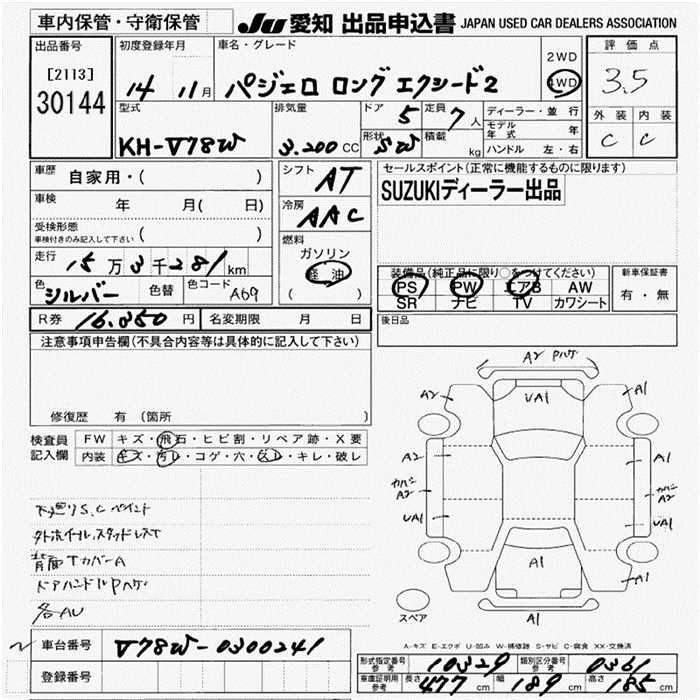 車内保管・守衛保管
JU 愛知 出品申込書 JAPAN USED CAR DEALERS ASSOCIATION
出品番号
[2113]
30144
初度登録年月
14 11月
車名・グレード
パジェロ ロング エクシード2
2WD
4WD
評価点
3.5
外装 内装
C C
型式
KH-V78W
排気量
3.200 CC
ドア 5
形状 SW
定員 7人
積載 kg
ディーラー・並行
モデル年式 年
ハンドル 左・右
車歴 自家用・( )
車検 年 月( 日)
受検形態
車検付きのみ記入して下さい ( )
走行 15万3千281km
色 シルバー 色替 色コード A69
シフト AT
冷房 AAC
燃料
ガソリン
軽油
( )
セールスポイント(正常に機能するものに限ります)
SUZUKIディーラー出品
装備品(純正品に限り○をつけてください)
PS PW エアB AW
SR ナビ TV カワシート
新車保証書
有・無
R券 16.850円 名変期限 月 日
後日品
注意事項申告欄(不具合内容等は具体的に記入して下さい)
修復歴 有(箇所 )
検査員記入欄
FW キズ・飛石・ヒビ割・リペア跡・X要
内装 キズ・汚レ・コゲ・穴・スレ・キレ・破レ
下廻りS.C ペイント
外ホイール、スタッドレスT
背面TカバーA
ドアハンドルPハゲ
各AU
A2 Pハゲ
A2
UA1
A1
A2
A1
カバー A2
カバー A2
UA1
UA1
A1
A1
A1
スペア
A-キズ E-エクボ U-凹み W-補修跡 S-サビ C-腐食 XX-交換済
車台番号 V78W-0300241
登録番号
形式指定番号 参考 10329 類別区分番号 参考 0361
車庫証明用 参考 長さ 477cm 幅 189cm 高さ 185cm